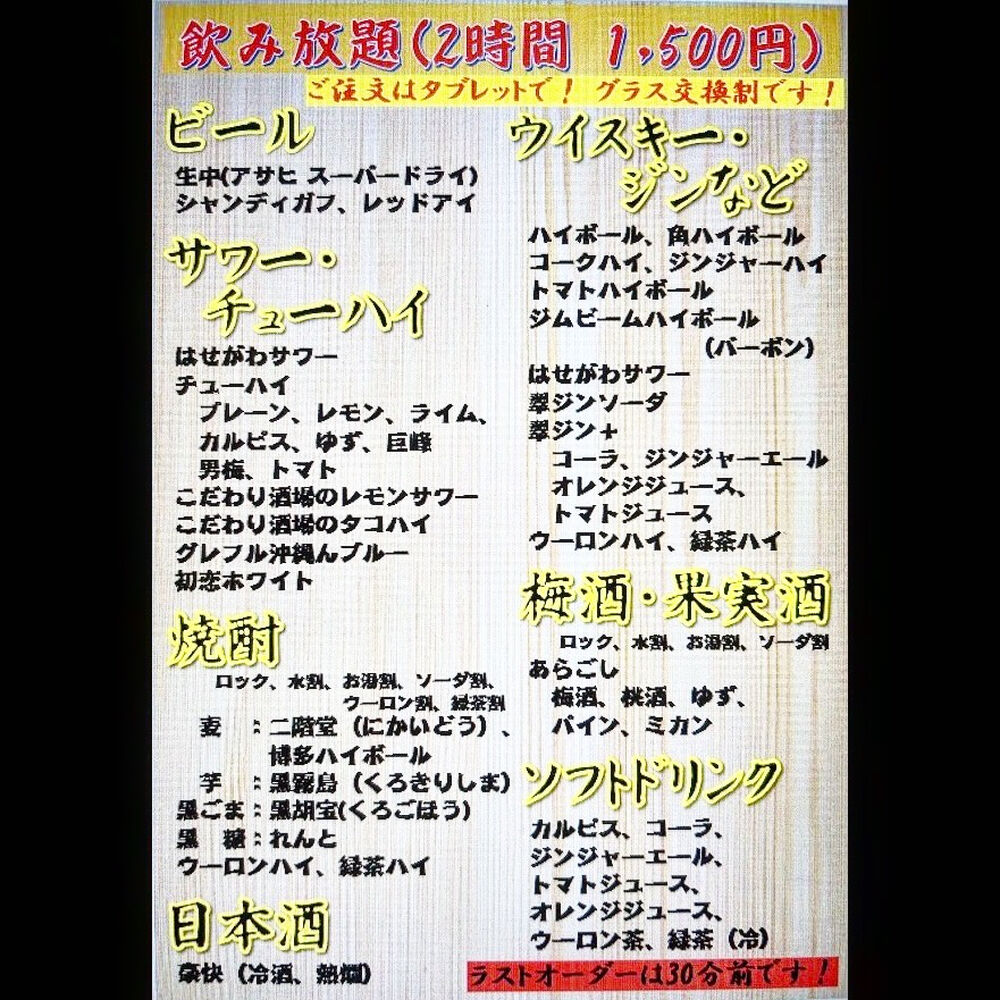 飲み放題(2時間 1,500円)
ご注文はタブレットで！ グラス交換制です！
ビール
生中(アサヒ スーパードライ)
シャンディガフ、レッドアイ
サワー・
チューハイ
はせがわサワー
チューハイ
プレーン、レモン、ライム、
カルピス、ゆず、巨峰
男梅、トマト
こだわり酒場のレモンサワー
こだわり酒場のタコハイ
グレフル沖縄んブルー
初恋ホワイト
焼酎
ロック、水割、お湯割、ソーダ割、
ウーロン割、緑茶割
麦　：二階堂（にかいどう）、
博多ハイボール
芋　：黒霧島（くろきりしま）
黒ごま：黒胡宝(くろごほう)
黒　糖：れんと
ウーロンハイ、緑茶ハイ
日本酒
豪快（冷酒、熱燗）
ウイスキー・
ジンなど
ハイボール、角ハイボール
コークハイ、ジンジャーハイ
トマトハイボール
ジムビームハイボール
（バーボン）
はせがわサワー
翠ジンソーダ
翠ジン＋
コーラ、ジンジャーエール
オレンジジュース、
トマトジュース
ウーロンハイ、緑茶ハイ
梅酒・果実酒
ロック、水割、お湯割、ソーダ割
あらごし
梅酒、桃酒、ゆず、
パイン、ミカン
ソフトドリンク
カルピス、コーラ、
ジンジャーエール、
トマトジュース、
オレンジジュース、
ウーロン茶、緑茶（冷）
ラストオーダーは30分前です！